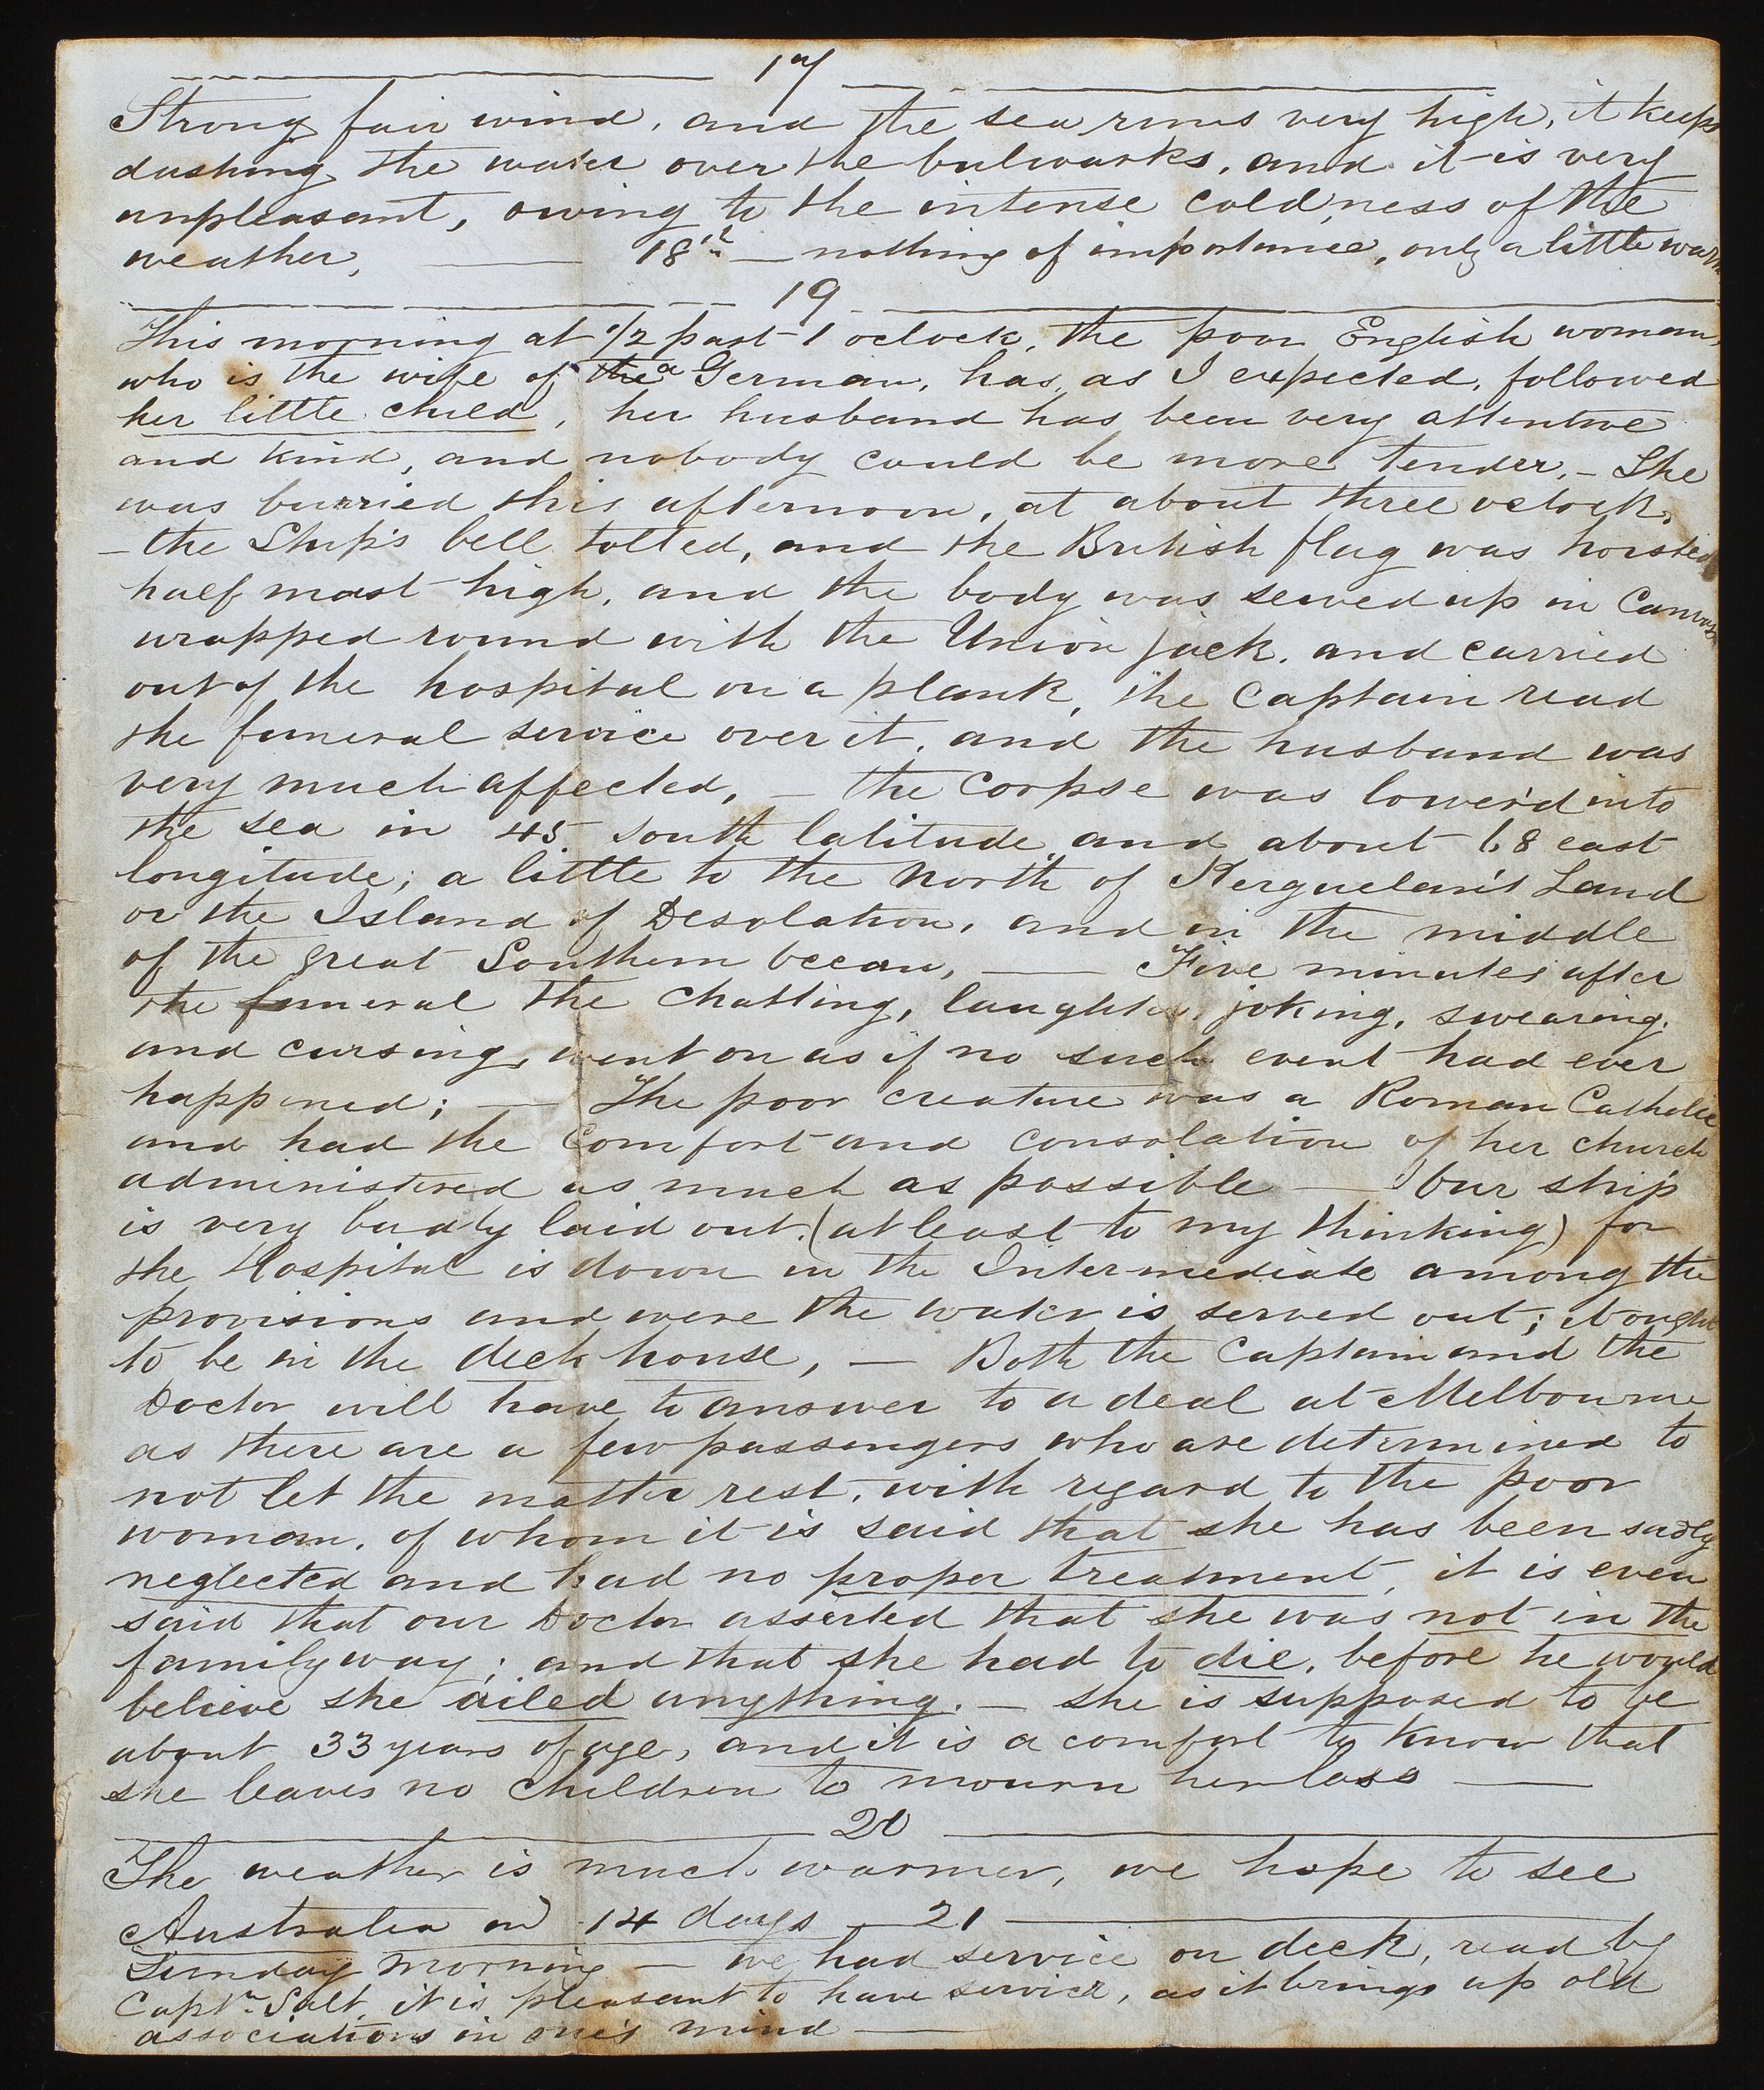 17
Strong fair wind, and the sea runs very high, it keeps
dashing the water over the bulwarks, and it is very
unpleasant, owing to the intense coldness of the
weather, — 18th — nothing of importance, only a little warm
19
This morning at 1/2 past 1 oclock, the poor English woman,
who is the wife of the a German, has, as I expected, followed
her little child, her husband has been very attentive
and kind, and nobody could be more tender, – She
was burried this afternoon, at about three oclock,
– the Ship's bell tolled, and the British flag was hoisted
half mast high, and the body was sewed up in Canvas
wrapped round with the Union Jack. and carried
out of the hospital on a plank, the Captain read
the funeral service over it, and the husband was
very much affected, – the corpse was lower'd into
the sea in 45 South latitude and about 68 east
longitude; a little to the North of Kerguelan's Land
or the Island of Desolation, and in the middle
of the great Southern Ocean, — Five minutes after
the funeral the chatting, laughter, joking, swearing,
and cursing, went on as if no such event had ever
happened; — The poor creature was a Roman Catholic
and had the comfort and consolation of her church
administered as much as possible — Our ship
is very badly laid out, (at least to my thinking) for
the Hospital is down in the Intermediate among the
provisions and were the water is served out; it ought
to be in the deck house, — Both the Captain and the
Doctor will have to answer to a deal at Melbourne
as there are a few passengers who are determined to
not let the matter rest, with regard to the poor
woman, of whom it is said that she has been sadly
neglected and had no proper treatment, it is even
said that our Doctor asserted that she was not in the
family way; and that she had to die, before he would
believe she ailed anything. – She is supposed to be
about 33 years of age, and it is a comfort to know that
she leaves no children to mourn her loss —
20
The weather is much warmer, we hope to see
Australia in 14 days — 21
Sunday morning – we had service on deck, read by
Captn Salt, it is pleasant to have service, as it brings up old
associations in one's mind —